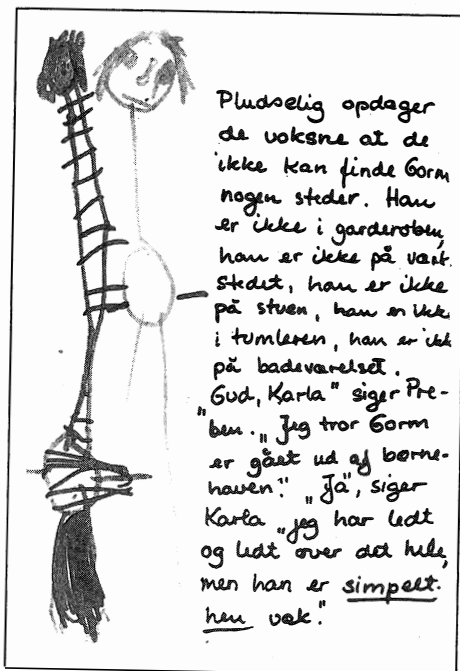 Pludselig opdager
de voksne at de
ikke kan finde Gorm
nogen steder. Han
er ikke i garderoben,
han er ikke på værk-
stedet, han er ikke
på stuen, han er ikk
i tumleren, han er ikk
på badeværelset.
"Gud, Karla" siger Pre-
ben. "Jeg tror Gorm
er gået ud af børne-
haven." "Ja", siger
Karla "jeg har ledt
og ledt over det hele,
men han er simpelt-
hen væk."